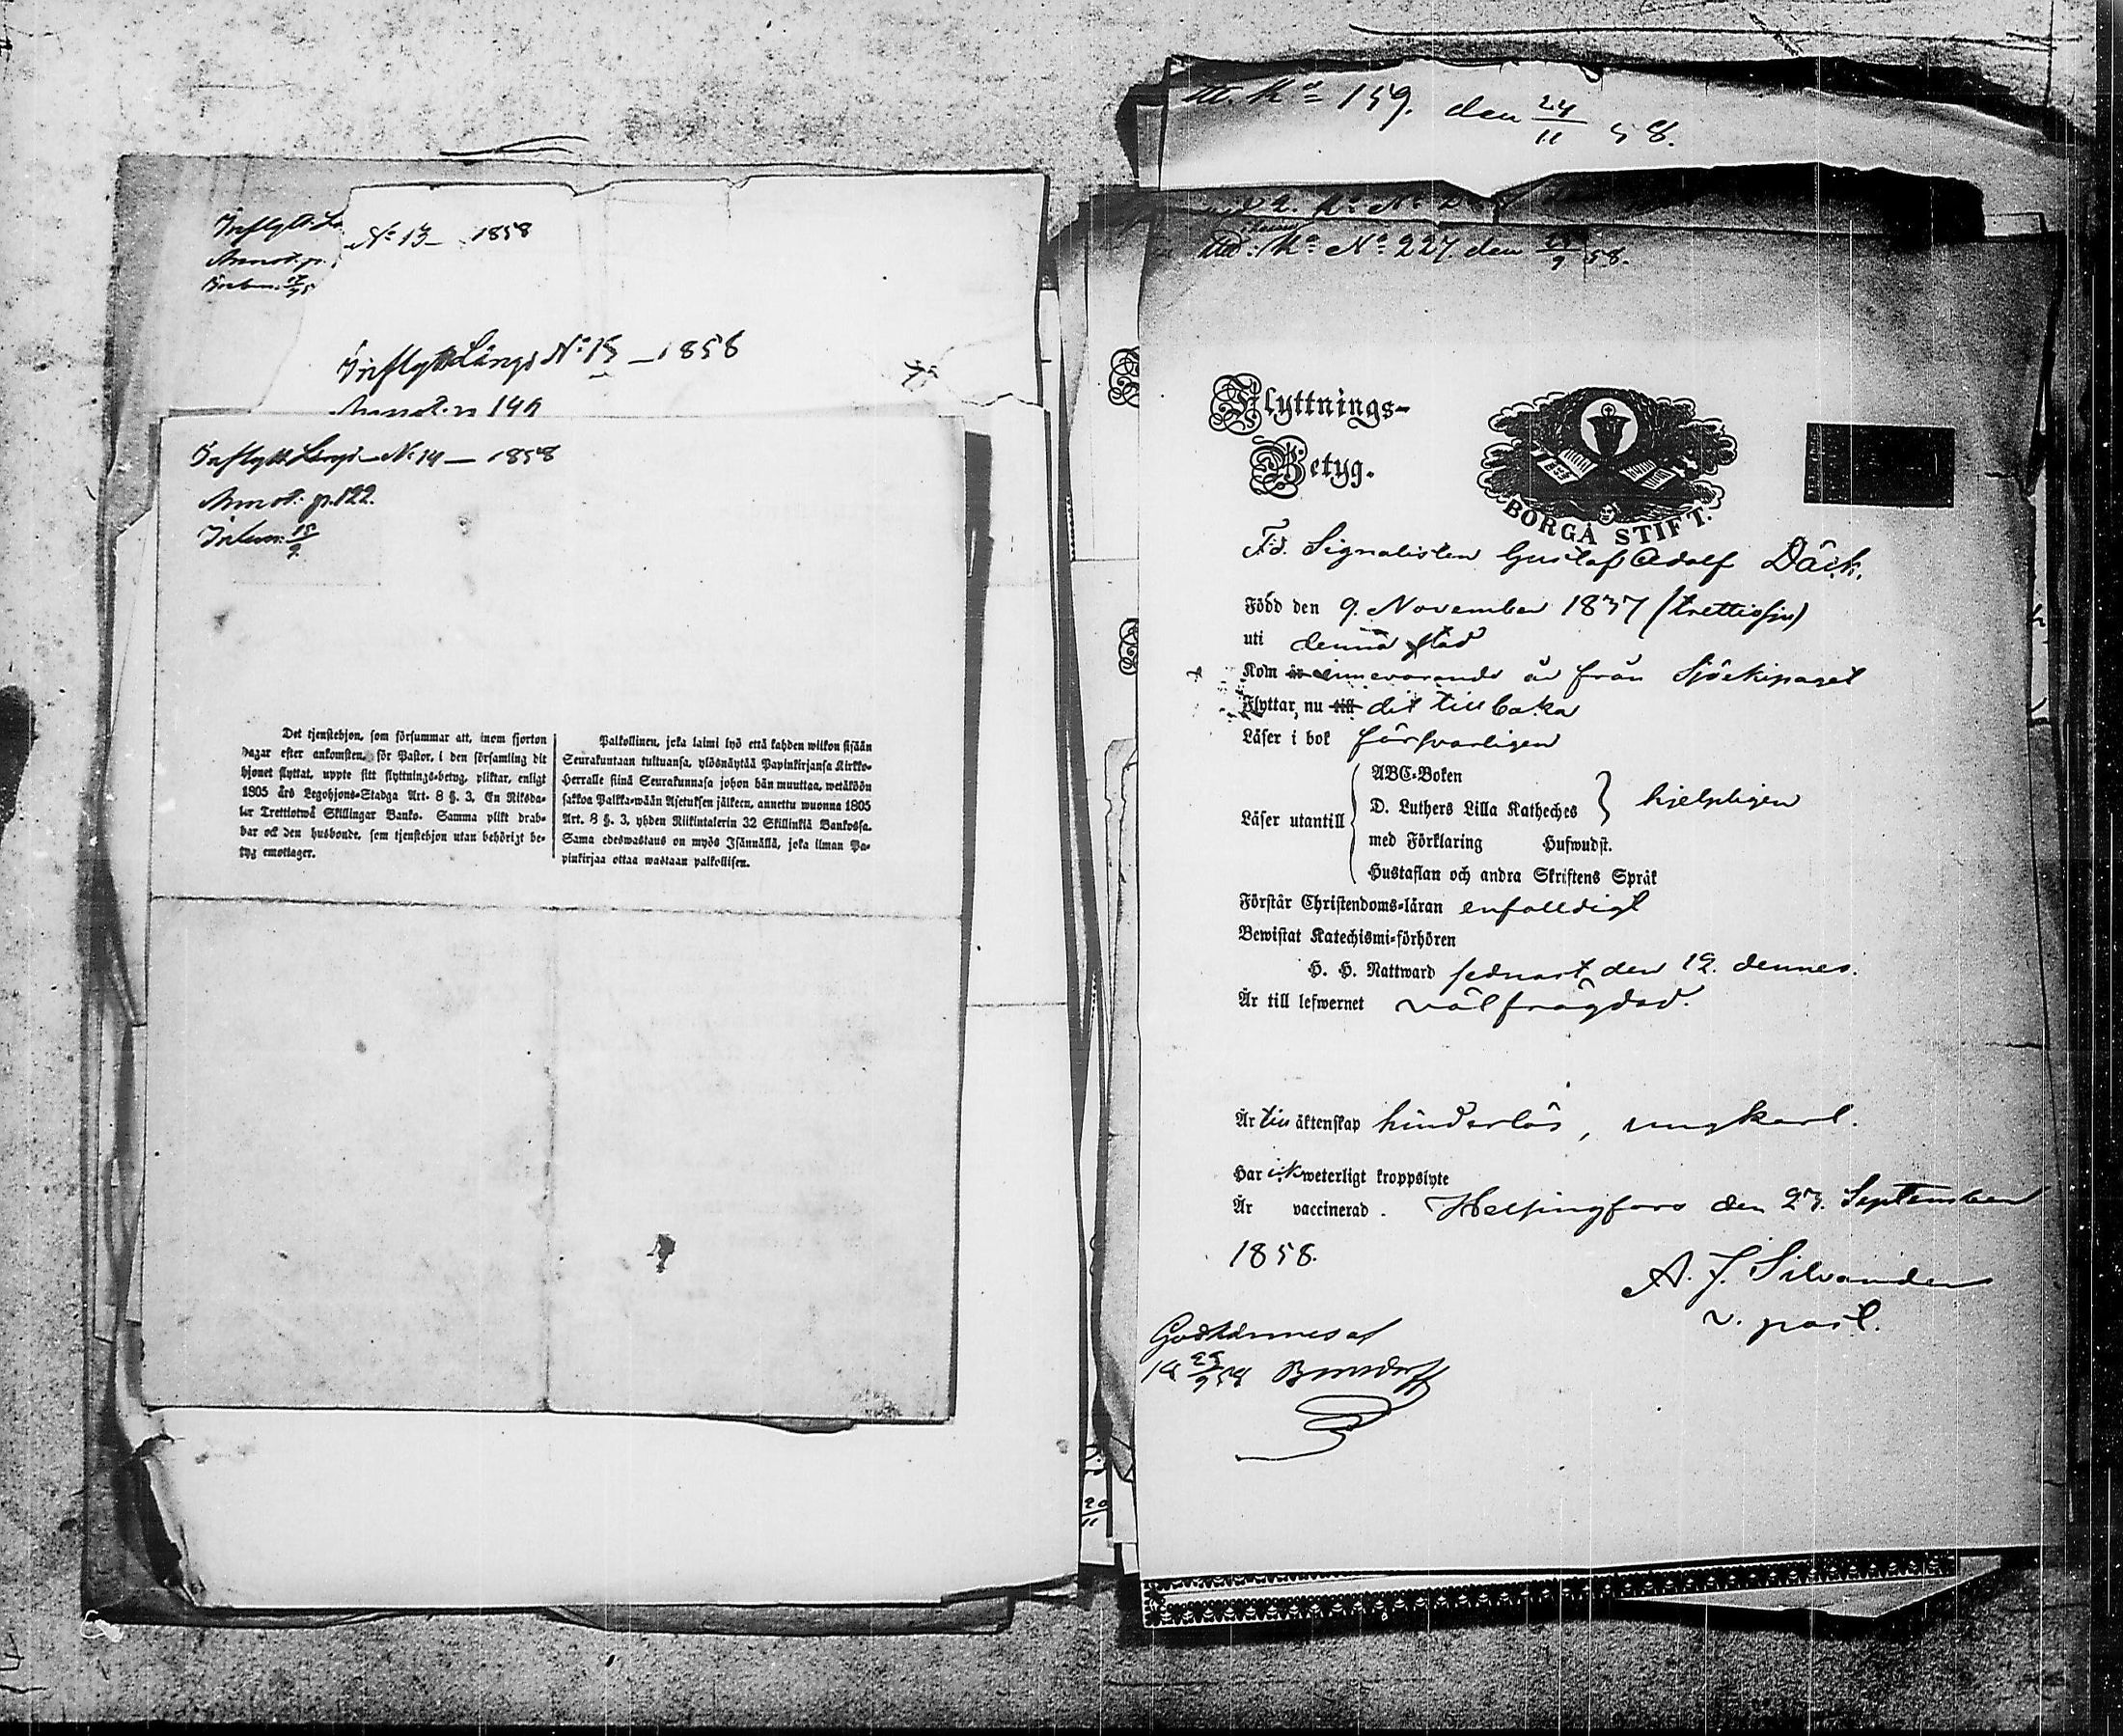 No 13 1858
Annot. p.
Inflytt. Längd No 13 — 1858
Inflytt. Längd No 14 — 1858
Annot: p. 122.
15/9
Det tjenstehjon, som försummar att, inom fjorton
dagar efter ankomsten, för Pastor, i den församling dit
hjonet flyttat, uppte sitt flyttnings-betyg, pliktar, enligt
1805 års Legohjons-Stadga Art. 8 §. 3, En Riksda-
ler Trettiotwå Skillingar Banko. Samma plikt drab-
bar ock den husbonde, som tjenstehjon utan behörigt be-
tyg emottager.
Palkollinen, joka laimi lyö että kahden wiikon sisään
Seurakuntaan tultuansa, ylösnäytää Papinkirjansa Kirkko-
Herralle siinä Seurakunnasa johon hän muuttaa, wetäköön
sakkoa Palkka-wään Asetuksen jälkeen, annettu wuonna 1805
Art. 8 §. 3, yhden Riikintalerin 32 Skillinkiä Bankossa.
Sama edeswastaus on myös Isännällä, joka ilman Pa-
pinkirjaa ottaa wastaan palkollisen.
159. den 24/11 58.
No 227. den 9 58.
Flyttnings-
Betyg.
BORGÅ STIFT.
F.d. Signalisten Gustaf Adolf Däck.
Född den 9. November 1837 (trettiosju)
uti denna stad
Kom innevarande år från Sjöekipaget
Flyttar nu till dit tillbaka
Läser i bok försvarligen
Läser utantill
ABC-Boken
D. Luthers Lilla Katheches } hjelpligen
med Förklaring Hufwudst.
Hustaflan och andra Skriftens Språk
Förstår Christendoms-läran enfalldigt
Bewistat Katechismi-förhören
H. H. Nattward sednast den 12. dennes.
Är till lefwernet välfrägdad.
Är till äktenskap hinderlös, ungkarl.
Har ick weterligt kroppslyte
Är vaccinerad. Helsingfors den 27. September
1858.
A. J. Silvander
v. past.
Godkännes af
20/11